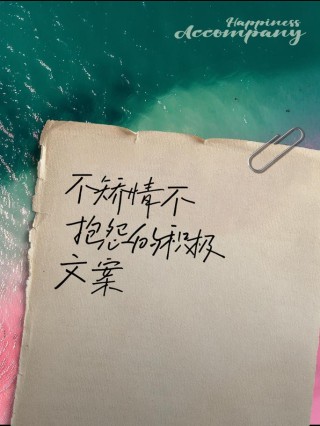 Happiness
Accompany
不矫情不
抱怨的积极
文案